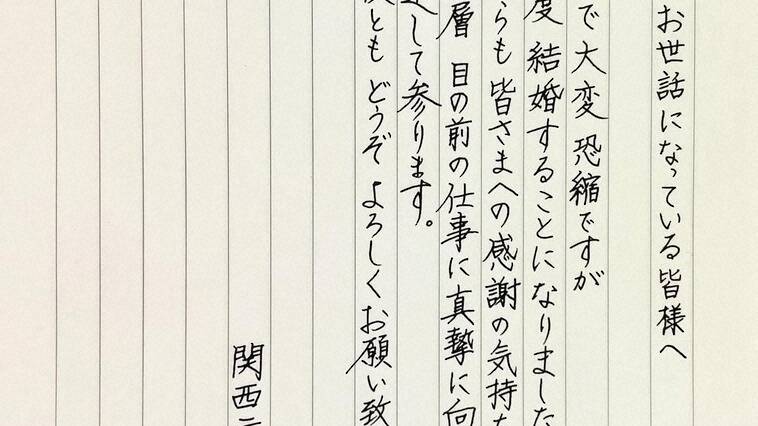 お世話になっている皆様へ
で大変恐縮ですが
度 結婚することになりました
らも 皆さまへの感謝の気持ち
層 目の前の仕事に真摯に向
して参ります。
とも どうぞ よろしくお願い致
関西